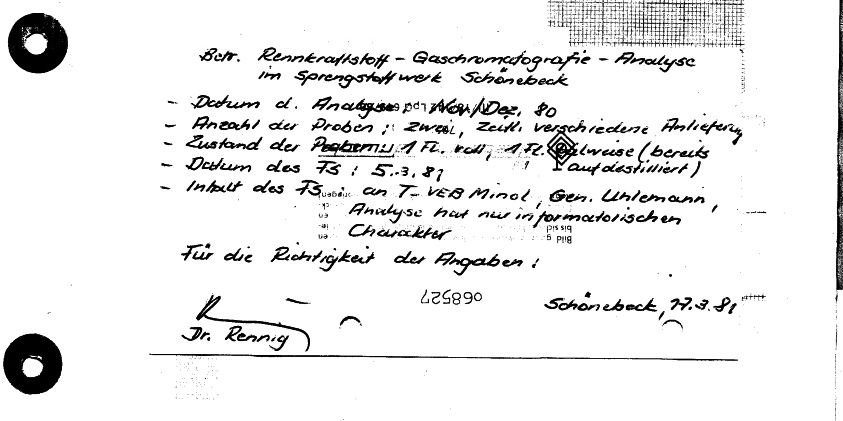 Betr. Rennkraftstoff - Gaschromatografie - Analyse
im Sprengstoffwerk Schönebeck
- Datum d. Analyse: Nov/Dez. 80
- Anzahl der Proben: zwei, zeitl. verschiedene Anlieferung
- Zustand der 1 Fl. voll, 1 Fl. teilweise (bereits
aufdestilliert)
- Datum des FS: 5.3.81
- Inhalt des FS: an T- VEB Minol, Gen. Uhlemann,
Analyse hat nur informatorischen
Charakter
Für die Richtigkeit der Angaben:
068527
Schönebeck, 17.3.81
Dr. Rennig